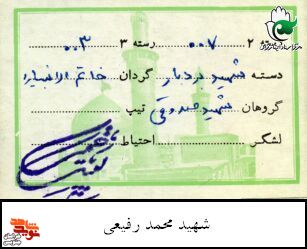 ۲ ۰۰۷ رسته ۳ ۰۰۳
دسته شهید بردبار گردان خاتم الانبیاء
گروهان شهید صدوقی تیپ
لشگر احتیاط
شهید محمد رفیعی